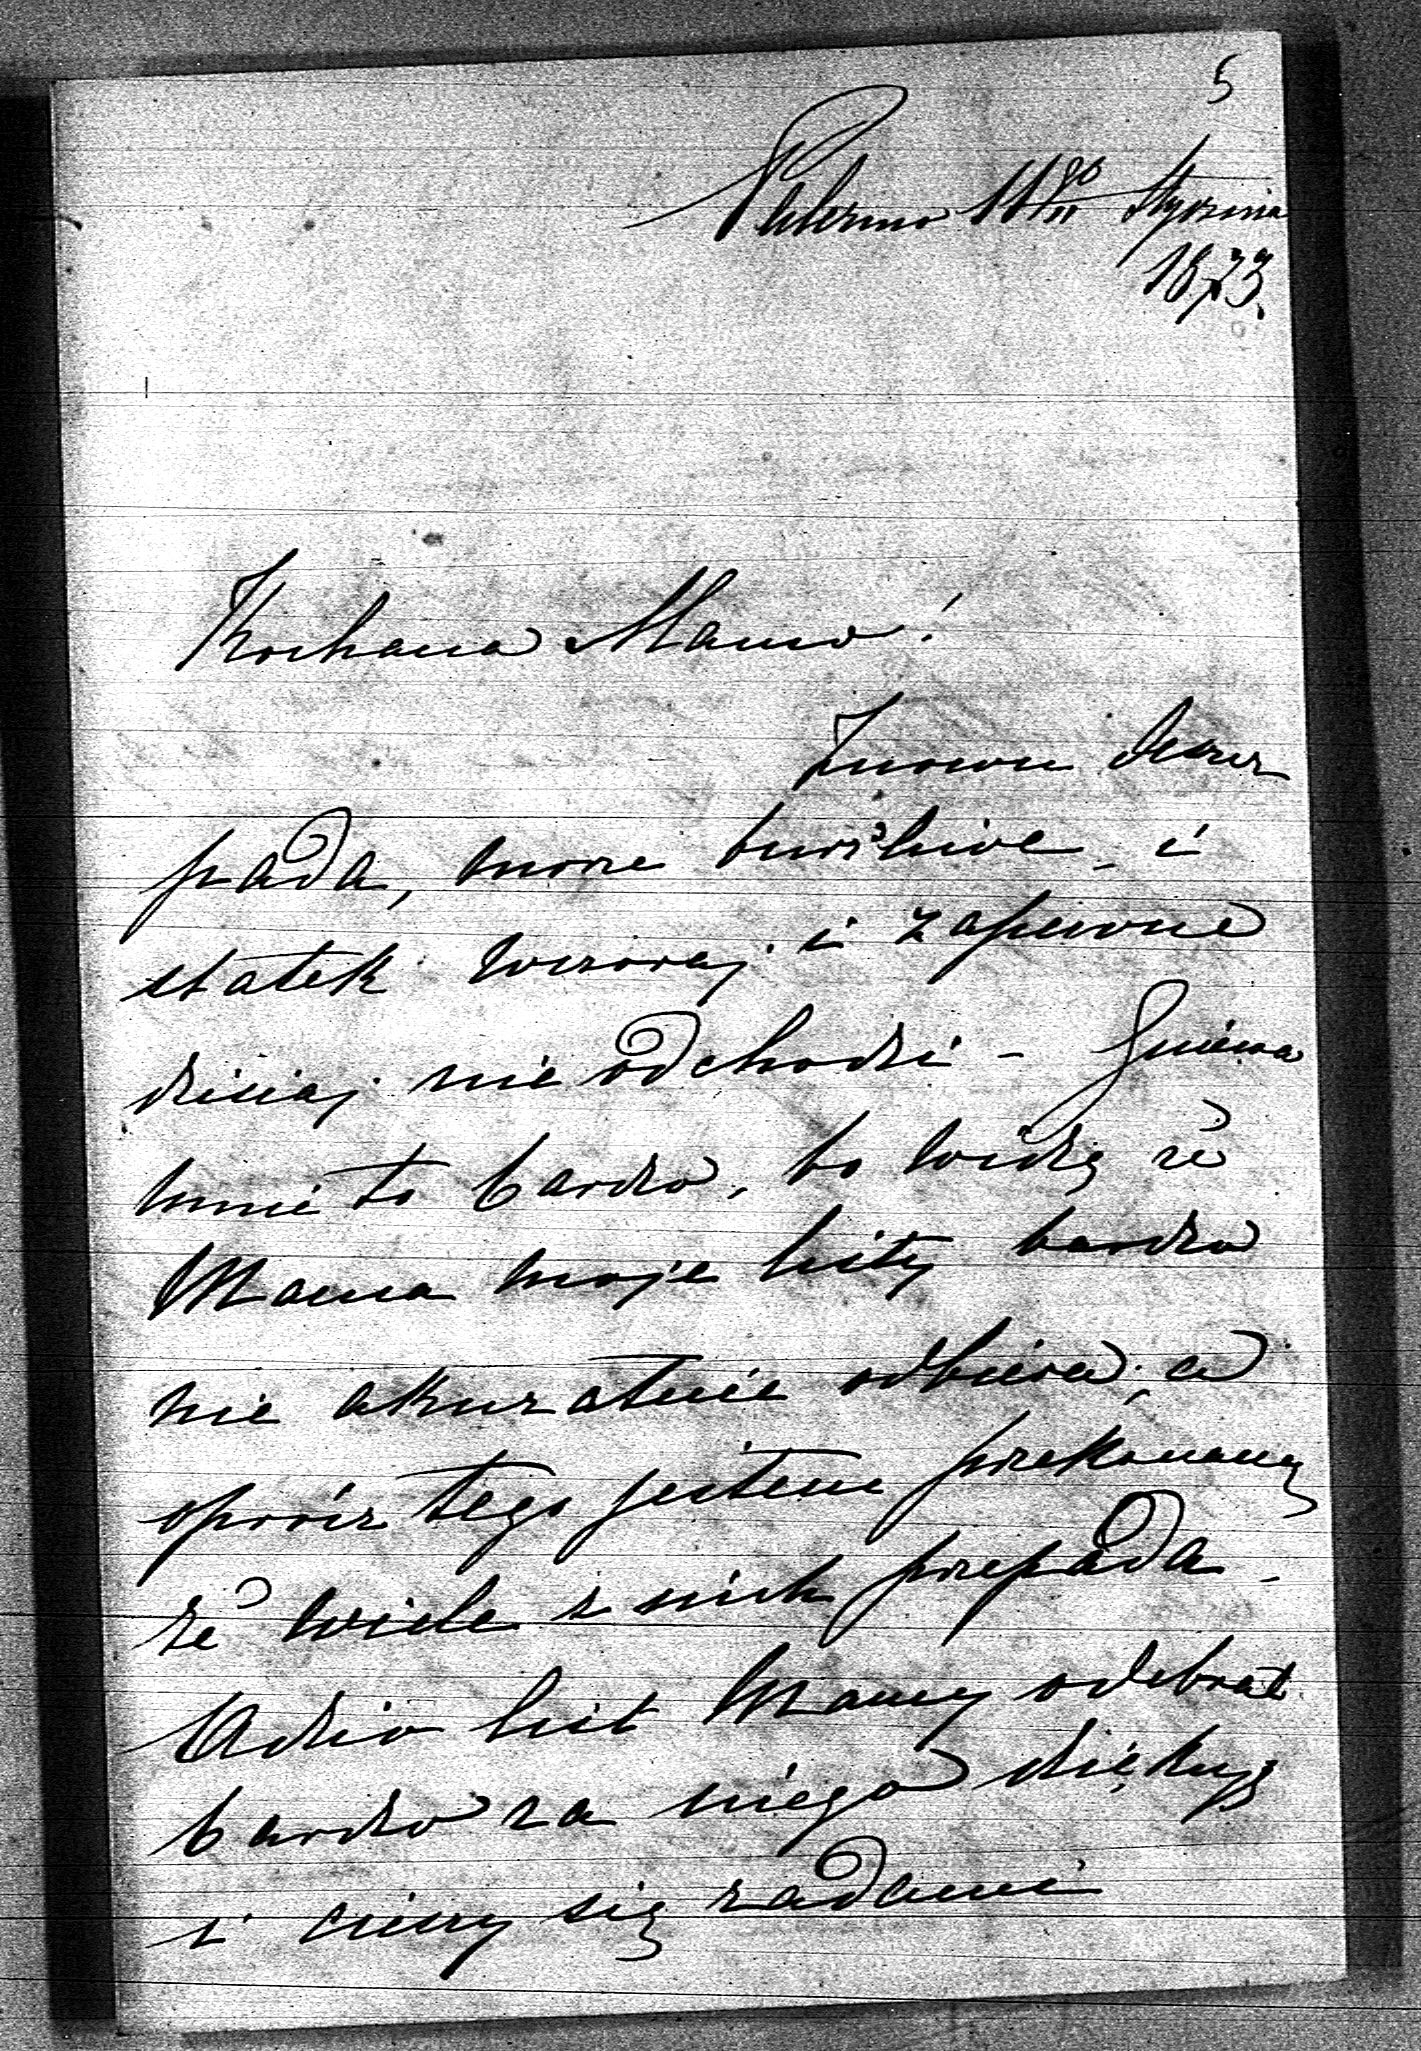 5
Palermo 11go Stycznia
1873.
Kochana Mamo!
Znowu deszcz
pada, morze burzliwe, i
statek wczoraj i zapewne
dzisiaj nie odchodzi - Gniewa
mnie to bardzo, bo widzę że
Mama moje listy bardzo
nie akuratnie odbiera, a
oprócz tego jestem przekonany
że wiele z nich przepada -
Adzio list Mamy odebrał
bardzo za niego dziękuję
i cieszy się radami